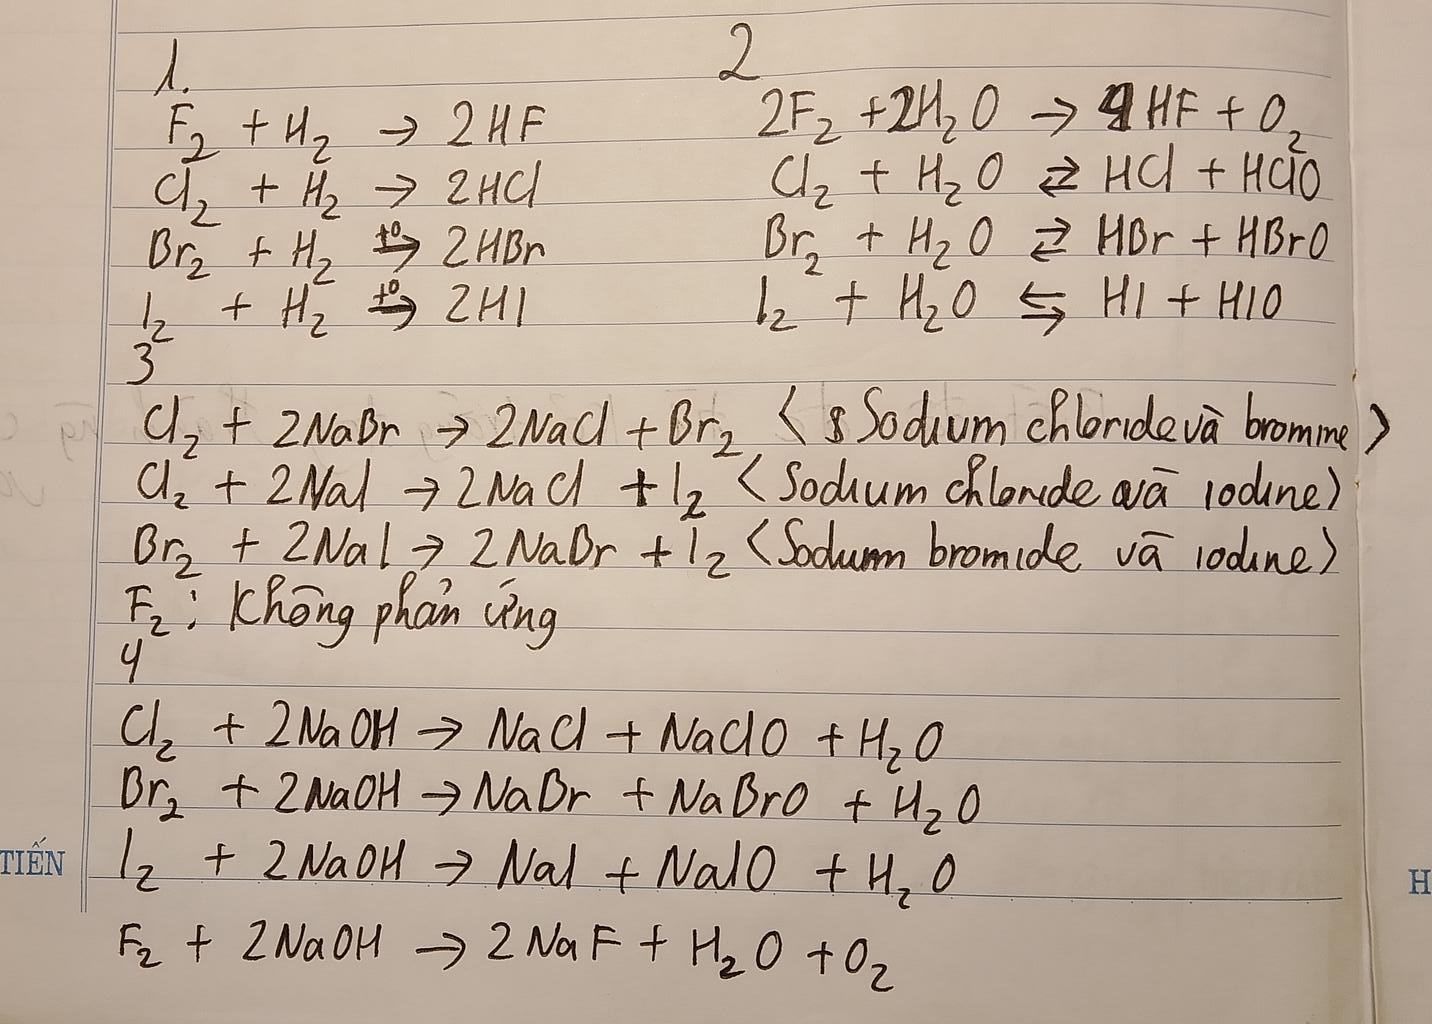 1.
F₂ + H₂ → 2HF
Cl₂ + H₂ → 2HCl
Br₂ + H₂ t⁰→ 2HBr
I₂ + H₂ t⁰→ 2HI
2
2F₂ + 2H₂O → 4HF + O₂
Cl₂ + H₂O ⇄ HCl + HClO
Br₂ + H₂O ⇄ HBr + HBrO
I₂ + H₂O ⇆ HI + HIO
3
Cl₂ + 2NaBr → 2NaCl + Br₂ (Sodium chloride và bromine)
Cl₂ + 2NaI → 2NaCl + I₂ (Sodium chloride và iodine)
Br₂ + 2NaI → 2NaBr + I₂ (Sodium bromide và iodine)
F₂ : Không phản ứng
4
Cl₂ + 2NaOH → NaCl + NaClO + H₂O
Br₂ + 2NaOH → NaBr + NaBrO + H₂O
I₂ + 2NaOH → NaI + NaIO + H₂O
F₂ + 2NaOH → 2NaF + H₂O + O₂
TIẾN
H